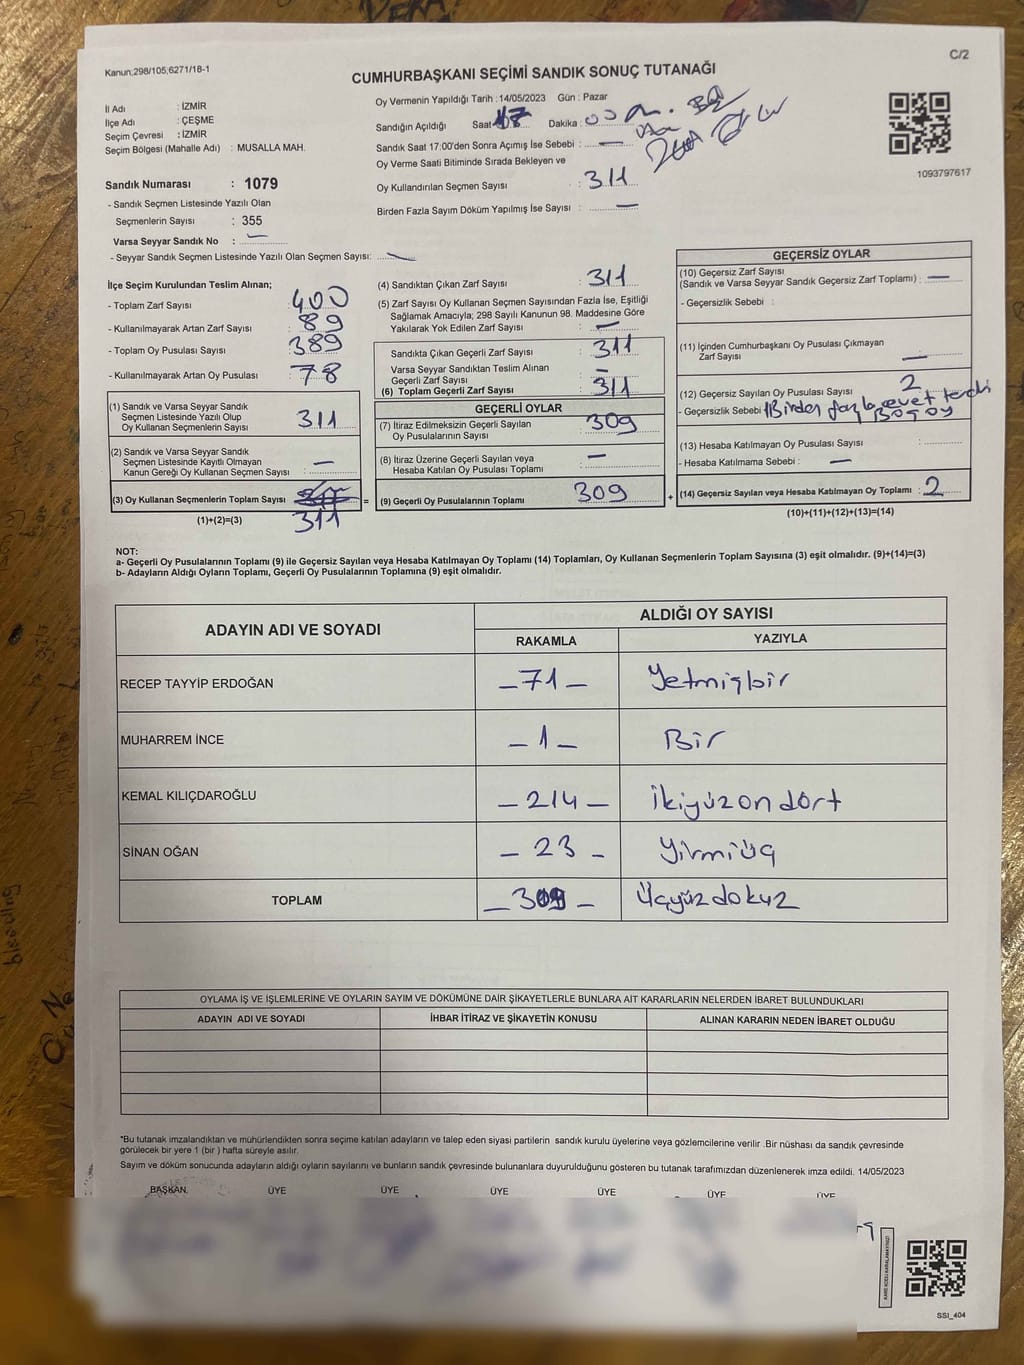 Kanun;298/105;6271/18-1
C/2
CUMHURBAŞKANI SEÇİMİ SANDIK SONUÇ TUTANAĞI
İl Adı : İZMİR
İlçe Adı : ÇEŞME
Seçim Çevresi : İZMİR
Seçim Bölgesi (Mahalle Adı) : MUSALLA MAH.
Sandık Numarası : 1079
- Sandık Seçmen Listesinde Yazılı Olan
Seçmenlerin Sayısı : 355
Varsa Seyyar Sandık No : —
- Seyyar Sandık Seçmen Listesinde Yazılı Olan Seçmen Sayısı: —
Oy Vermenin Yapıldığı Tarih : 14/05/2023 Gün : Pazar
Sandığın Açıldığı Saat : 17 Dakika : 00
Sandık Saat 17:00'den Sonra Açımış İse Sebebi : —
Oy Verme Saati Bitiminde Sırada Bekleyen ve
Oy Kullandırılan Seçmen Sayısı : 311
Birden Fazla Sayım Döküm Yapılmış İse Sayısı : —
1093797617
İlçe Seçim Kurulundan Teslim Alınan;
- Toplam Zarf Sayısı : 400
- Kullanılmayarak Artan Zarf Sayısı : 89
- Toplam Oy Pusulası Sayısı : 389
- Kullanılmayarak Artan Oy Pusulası : 78
(1) Sandık ve Varsa Seyyar Sandık
Seçmen Listesinde Yazılı Olup
Oy Kullanan Seçmenlerin Sayısı : 311
(2) Sandık ve Varsa Seyyar Sandık
Seçmen Listesinde Kayıtlı Olmayan
Kanun Gereği Oy Kullanan Seçmen Sayısı : —
(3) Oy Kullanan Seçmenlerin Toplam Sayısı =
311
(1)+(2)=(3)
(4) Sandıktan Çıkan Zarf Sayısı : 311
(5) Zarf Sayısı Oy Kullanan Seçmen Sayısından Fazla İse, Eşitliği
Sağlamak Amacıyla; 298 Sayılı Kanunun 98. Maddesine Göre
Yakılarak Yok Edilen Zarf Sayısı : —
Sandıkta Çıkan Geçerli Zarf Sayısı : 311
Varsa Seyyar Sandıktan Teslim Alınan
Geçerli Zarf Sayısı : —
(6) Toplam Geçerli Zarf Sayısı : 311
GEÇERLİ OYLAR
(7) İtiraz Edilmeksizin Geçerli Sayılan
Oy Pusulalarının Sayısı : 309
(8) İtiraz Üzerine Geçerli Sayılan veya
Hesaba Katılan Oy Pusulası Toplamı : —
(9) Geçerli Oy Pusulalarının Toplamı 309 +
GEÇERSİZ OYLAR
(10) Geçersiz Zarf Sayısı
(Sandık ve Varsa Seyyar Sandık Geçersiz Zarf Toplamı) : —
- Geçersizlik Sebebi :
(11) İçinden Cumhurbaşkanı Oy Pusulası Çıkmayan
Zarf Sayısı —
(12) Geçersiz Sayılan Oy Pusulası Sayısı : 2
- Geçersizlik Sebebi : Birden fazla evet tercihi
Boş oy
(13) Hesaba Katılmayan Oy Pusulası Sayısı :
- Hesaba Katılmama Sebebi : —
(14) Geçersiz Sayılan veya Hesaba Katılmayan Oy Toplamı : 2
(10)+(11)+(12)+(13)=(14)
NOT:
a- Geçerli Oy Pusulalarının Toplamı (9) ile Geçersiz Sayılan veya Hesaba Katılmayan Oy Toplamı (14) Toplamları, Oy Kullanan Seçmenlerin Toplam Sayısına (3) eşit olmalıdır. (9)+(14)=(3)
b- Adayların Aldığı Oyların Toplamı, Geçerli Oy Pusulalarının Toplamına (9) eşit olmalıdır.
ADAYIN ADI VE SOYADI ALDIĞI OY SAYISI
RAKAMLA YAZIYLA
RECEP TAYYİP ERDOĞAN – 71 – Yetmişbir
MUHARREM İNCE – 1 – Bir
KEMAL KILIÇDAROĞLU – 214 – İkiyüzondört
SİNAN OĞAN – 23 – Yirmiüç
TOPLAM – 309 – Üçyüzdokuz
OYLAMA İŞ VE İŞLEMLERİNE VE OYLARIN SAYIM VE DÖKÜMÜNE DAİR ŞİKAYETLERLE BUNLARA AİT KARARLARIN NELERDEN İBARET BULUNDUKLARI
ADAYIN ADI VE SOYADI İHBAR İTİRAZ VE ŞİKAYETİN KONUSU ALINAN KARARIN NEDEN İBARET OLDUĞU
*Bu tutanak imzalandıktan ve mühürlendikten sonra seçime katılan adayların ve talep eden siyasi partilerin sandık kurulu üyelerine veya gözlemcilerine verilir .Bir nüshası da sandık çevresinde
görülecek bir yere 1 (bir ) hafta süreyle asılır.
Sayım ve döküm sonucunda adayların aldığı oyların sayılarını ve bunların sandık çevresinde bulunanlara duyurulduğunu gösteren bu tutanak tarafımızdan düzenlenerek imza edildi. 14/05/2023
BAŞKAN ÜYE ÜYE ÜYE ÜYE ÜYE ÜYE
KARE KODU KARALAMAYINIZ!
SSI_404